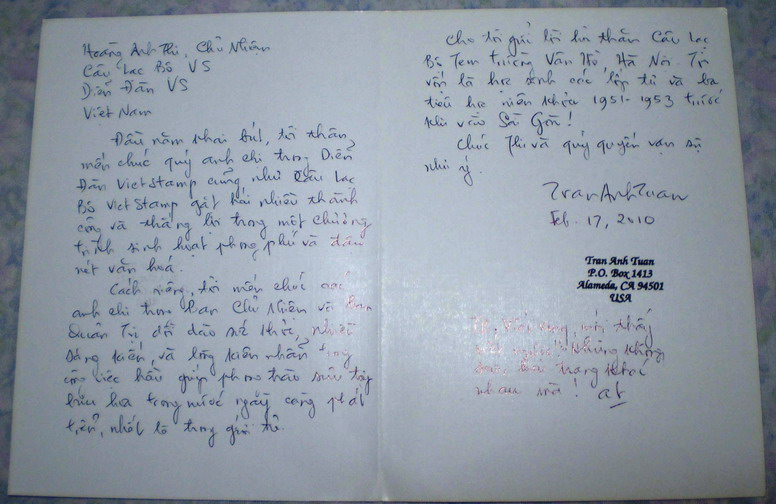 Hoàng Anh Thi, Chủ Nhiệm
Câu Lạc Bộ VS
Diễn Đàn VS
Việt Nam
Đầu năm khai bút, tôi thân
mến chúc quý anh chị trong Diễn
Đàn VietStamp cũng như Câu Lạc
Bộ VietStamp gặt hái nhiều thành
công và thắng lợi trong một chương
trình sinh hoạt phong phú và đậm
nét văn hoá.
Cách riêng, tôi mến chúc các
anh chị trong Ban Chủ Nhiệm và Ban
Quản Trị dồi dào sức khỏe, nhiều
sáng kiến, và lòng kiên nhẫn trong
công việc hầu giúp phong trào sưu tập
bưu hoa trong nước ngày càng phát
triển, nhất là trong giới trẻ.
Cho tôi gửi lời hỏi thăm Câu Lạc
Bộ Tem trường Vân Hồ, Hà Nội. Tôi
vốn là học sinh các lớp tư và ba
tiểu học niên khóa 1951-1953 trước
khi vào Sài Gòn!
Chúc Thi và quý quyến vạn sự
như ý.
TranAnhTuan
Feb. 17, 2010
Tran Anh Tuan
P.O. Box 1413
Alameda, CA 94501
USA
thấy
ngược! Nhưng không
trang khác
nhau mà! at